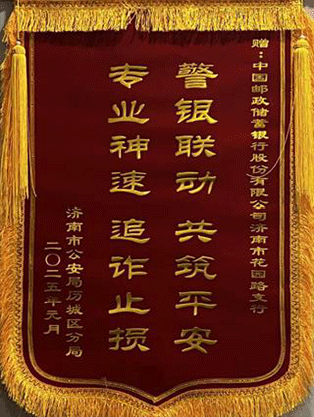 赠：中国邮政储蓄银行股份有限公司济南市花园路支行
警银联动 共筑平安
专业神速 追诈止损
济南市公安局历城区分局
二〇二五年元月